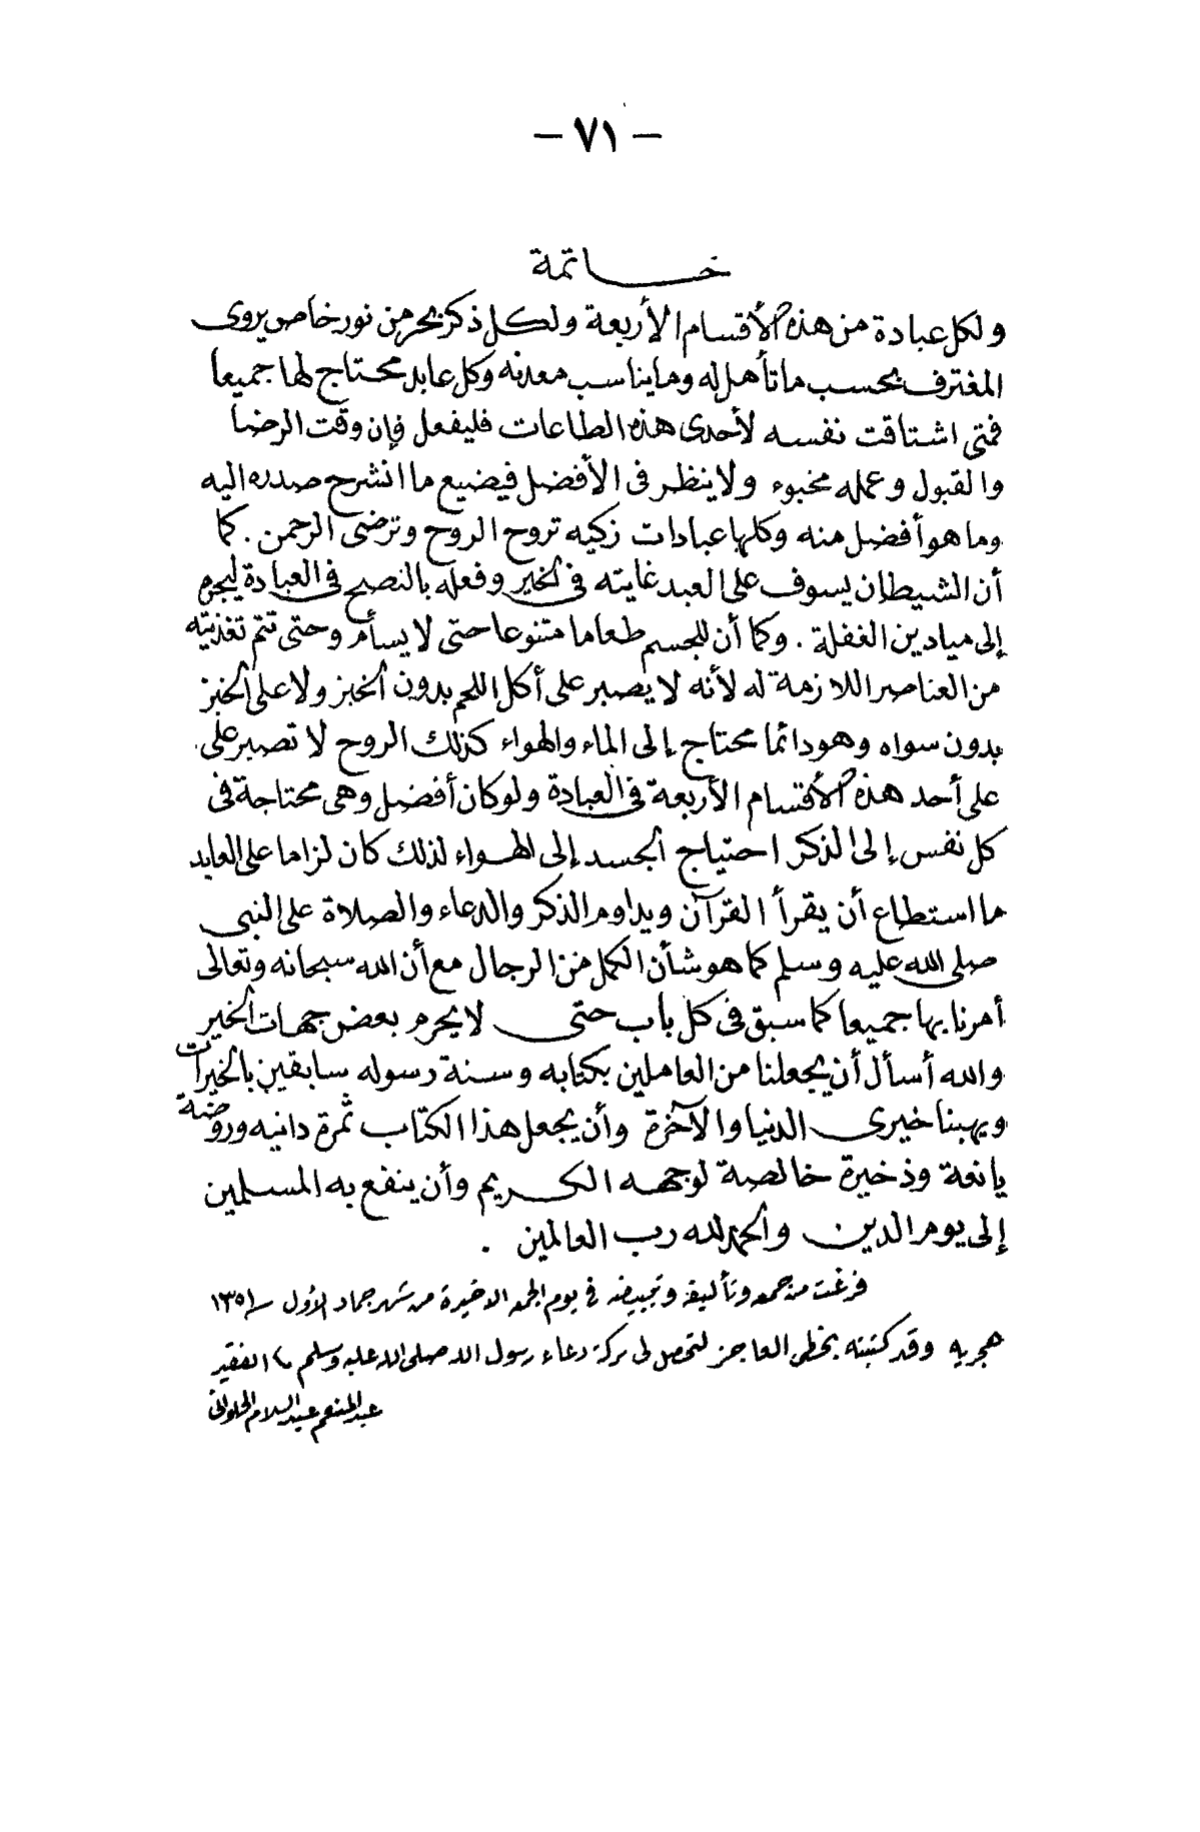 - ٧١ -
خاتمة
ولكل عبادة من هذه الأقسام الأربعة ولكل ذكر بحر من نور خاص يروى
المغترف بحسب ما تأهل له وما يناسب معدنه وكل عابد محتاج لها جميعا
فمتى اشتاقت نفسه لأحدى هذه الطاعات فليفعل فإن وقت الرضا
والقبول وعمله مخبوء ولا ينظر فى الأفضل فيضيع ما انشرح صدره اليه
وما هو أفضل منه وكلها عبادات زكيه تروح الروح وترضى الرحمن . كما
أن الشيطان يسوف على العبد غايته فى الخير وفعله بالنصح فى العبادة ليجره
إلى ميادين الغفلة . وكما أن للجسم طعاما متنوعا حتى لا يسأم وحتى تتم تغذيته
من العناصر اللازمة له لأنه لا يصبر على أكل اللحم بدون الخبز ولا على الخبز
بدون سواه وهو دائما محتاج إلى الماء والهواء كذلك الروح لا تصبر على
على أحد هذه الأقسام الأربعة فى العبادة ولو كان أفضل وهى محتاجة فى
كل نفس إلى الذكر احتياج الجسد إلى الهواء لذلك كان لزاما على العابد
ما استطاع أن يقرأ القرآن ويداوم الذكر والدعاء والصلاة على النبى
صلى الله عليه وسلم كما هو شأن الكمل من الرجال مع أن الله سبحانه وتعالى
أمرنا بها جميعا كما سبق فى كل باب حتى لا يحرم بعض جهات الخير
والله أسأل أن يجعلنا من العاملين بكتابه وسنة رسوله سابقين بالخيرات
ويهبنا خيرى الدنيا والآخرة وأن يجعل هذا الكتاب ثمرة دانيه وروضة
يانعة وذخيرة خالصة لوجهه الكريم وأن ينفع به المسلمين
إلى يوم الدين والحمد لله رب العالمين .
فرغت من جمعه وتأليفه وتبييضه فى يوم الجمعه الاخيرة من شهر جماد الأول ١٣٥١
هجريه وقد كتبته بخطى العاجز لتحصل لى بركة دعاء رسول الله صلى الله عليه وسلم الفقير
عبد المنعم عبد السلام الحلوانى